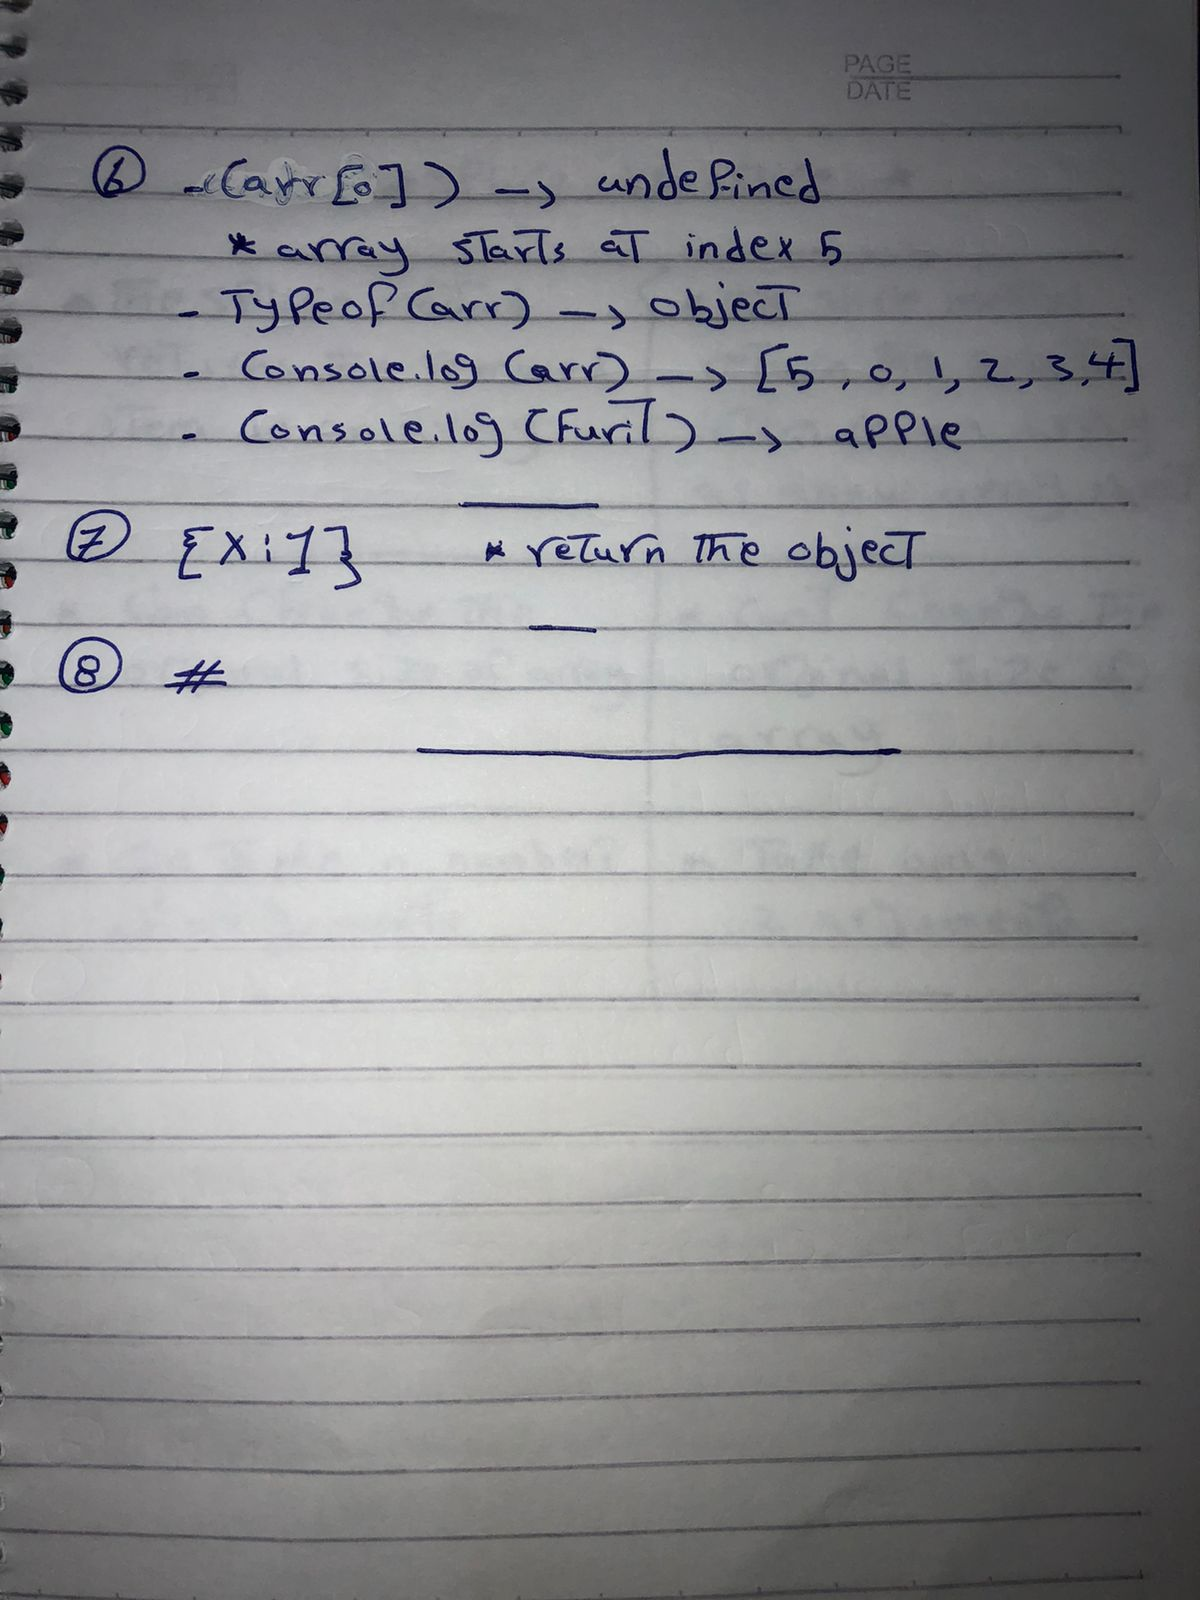 PAGE
DATE
6 - (arr[0]) -> undefined
* array starts at index 5
- Typeof(arr) -> object
- Console.log (arr) -> [5, 0, 1, 2, 3, 4]
- Console.log (Furit) -> apple
7 {x:1} * return the object
8 #